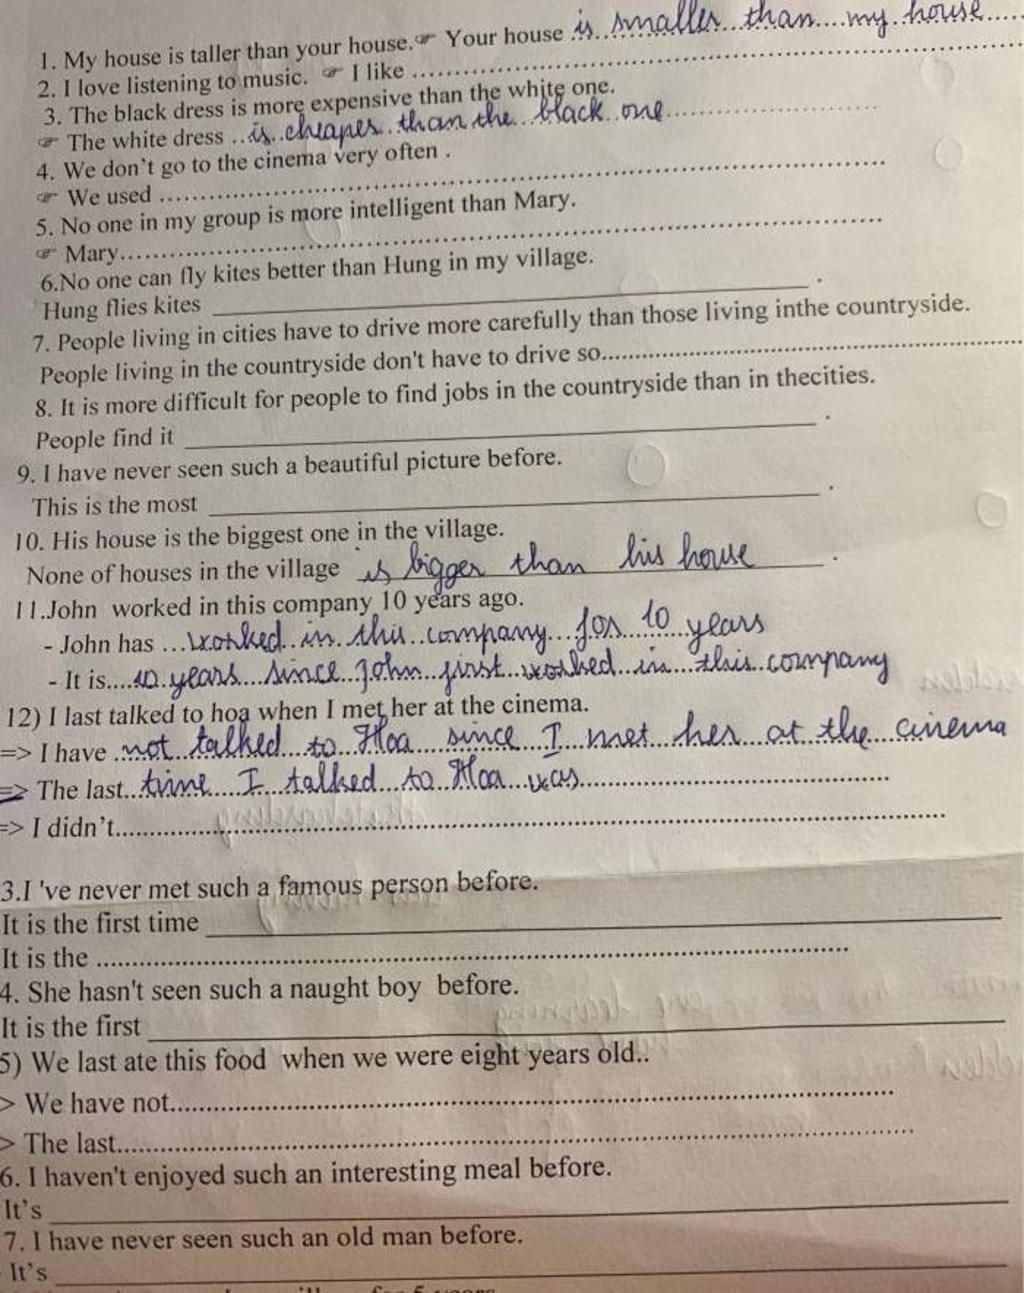 1. My house is taller than your house.☞ Your house is smaller than my house
2. I love listening to music. ☞ I like
3. The black dress is more expensive than the white one.
☞ The white dress is cheaper than the black one
4. We don't go to the cinema very often .
☞ We used
5. No one in my group is more intelligent than Mary.
☞ Mary
6.No one can fly kites better than Hung in my village.
Hung flies kites .
7. People living in cities have to drive more carefully than those living inthe countryside.
People living in the countryside don't have to drive so
8. It is more difficult for people to find jobs in the countryside than in thecities.
People find it .
9. I have never seen such a beautiful picture before.
This is the most .
10. His house is the biggest one in the village.
None of houses in the village is bigger than his house .
11.John worked in this company 10 years ago.
- John has worked in this company for 10 years
- It is 10 years since John first worked in this company
12) I last talked to hoa when I met her at the cinema.
=> I have not talked to Hoa since I met her at the cinema
=> The last time I talked to Hoa was
=> I didn't
3.I 've never met such a famous person before.
It is the first time
It is the
4. She hasn't seen such a naught boy before.
It is the first
5) We last ate this food when we were eight years old..
> We have not
> The last
6. I haven't enjoyed such an interesting meal before.
It's
7. I have never seen such an old man before.
It's